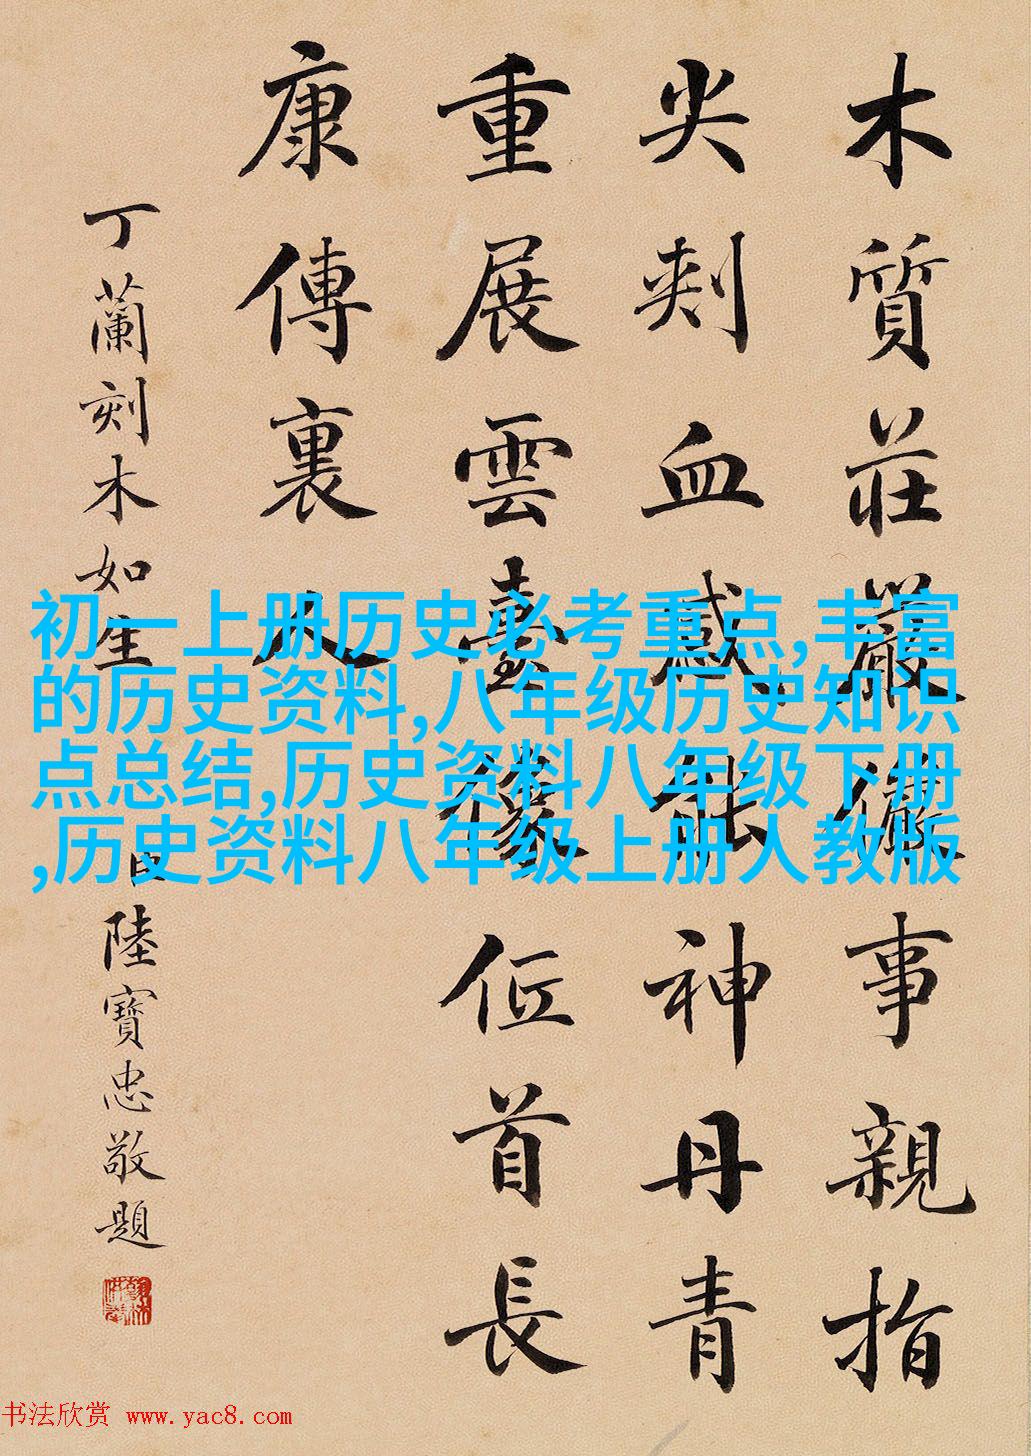 木質莊嚴儼事親指
尖刾血感能神丹青
重展雲臺像低首長
康傳裏人
丁蘭刻木如生
陸寶忠敬題
初一上册历史必考重点,丰富
的历史资料,八年级历史知识
点总结,历史资料八年级下册
,历史资料八年级上册人教版
书法欣赏 www.yac8.com